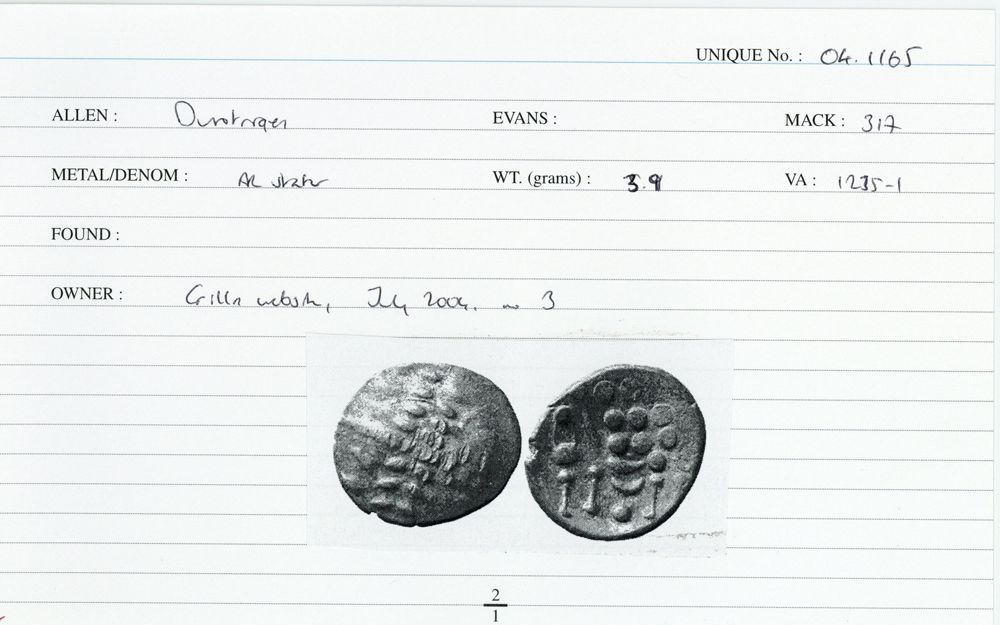 UNIQUE No. : 04.1165
ALLEN : Durotriges EVANS : MACK : 317
METAL/DENOM : AR stater WT. (grams) : 3.9 VA : 1235-1
FOUND :
OWNER : website, July 2004. no 3
2
1